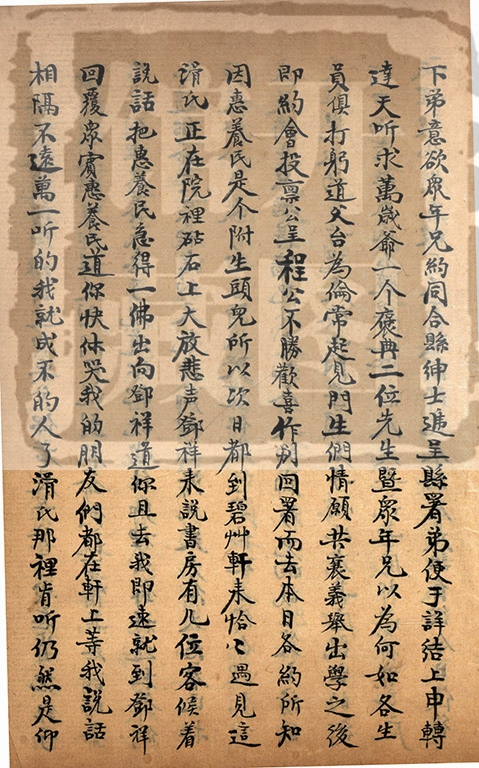 下弟意欲眾年兄約同合縣紳士遞呈縣署弟便于詳結上申轉
達天听求萬歲爺一个褒典二位先生暨眾年兄以為何如各生
員俱打躬道父台為倫常起見門生們情願共襄義舉出學之後
即約會投禀公呈程公不勝歡喜作別回署而去本日各約所知
因惠養民是个附生頭兒所以次日都到碧艸軒来恰〻遇見這
滑氏正在院裡砧石上大放悲声鄧祥来說書房有几位客候着
說話把惠養民急得一佛出向鄧祥道你且去我即速就到鄧祥
回覆眾賓惠養民道你快休哭我的朋友們都在軒上等我說話
相隔不遠萬一听的我就成不的人了滑氏那裡肯听仍然是仰